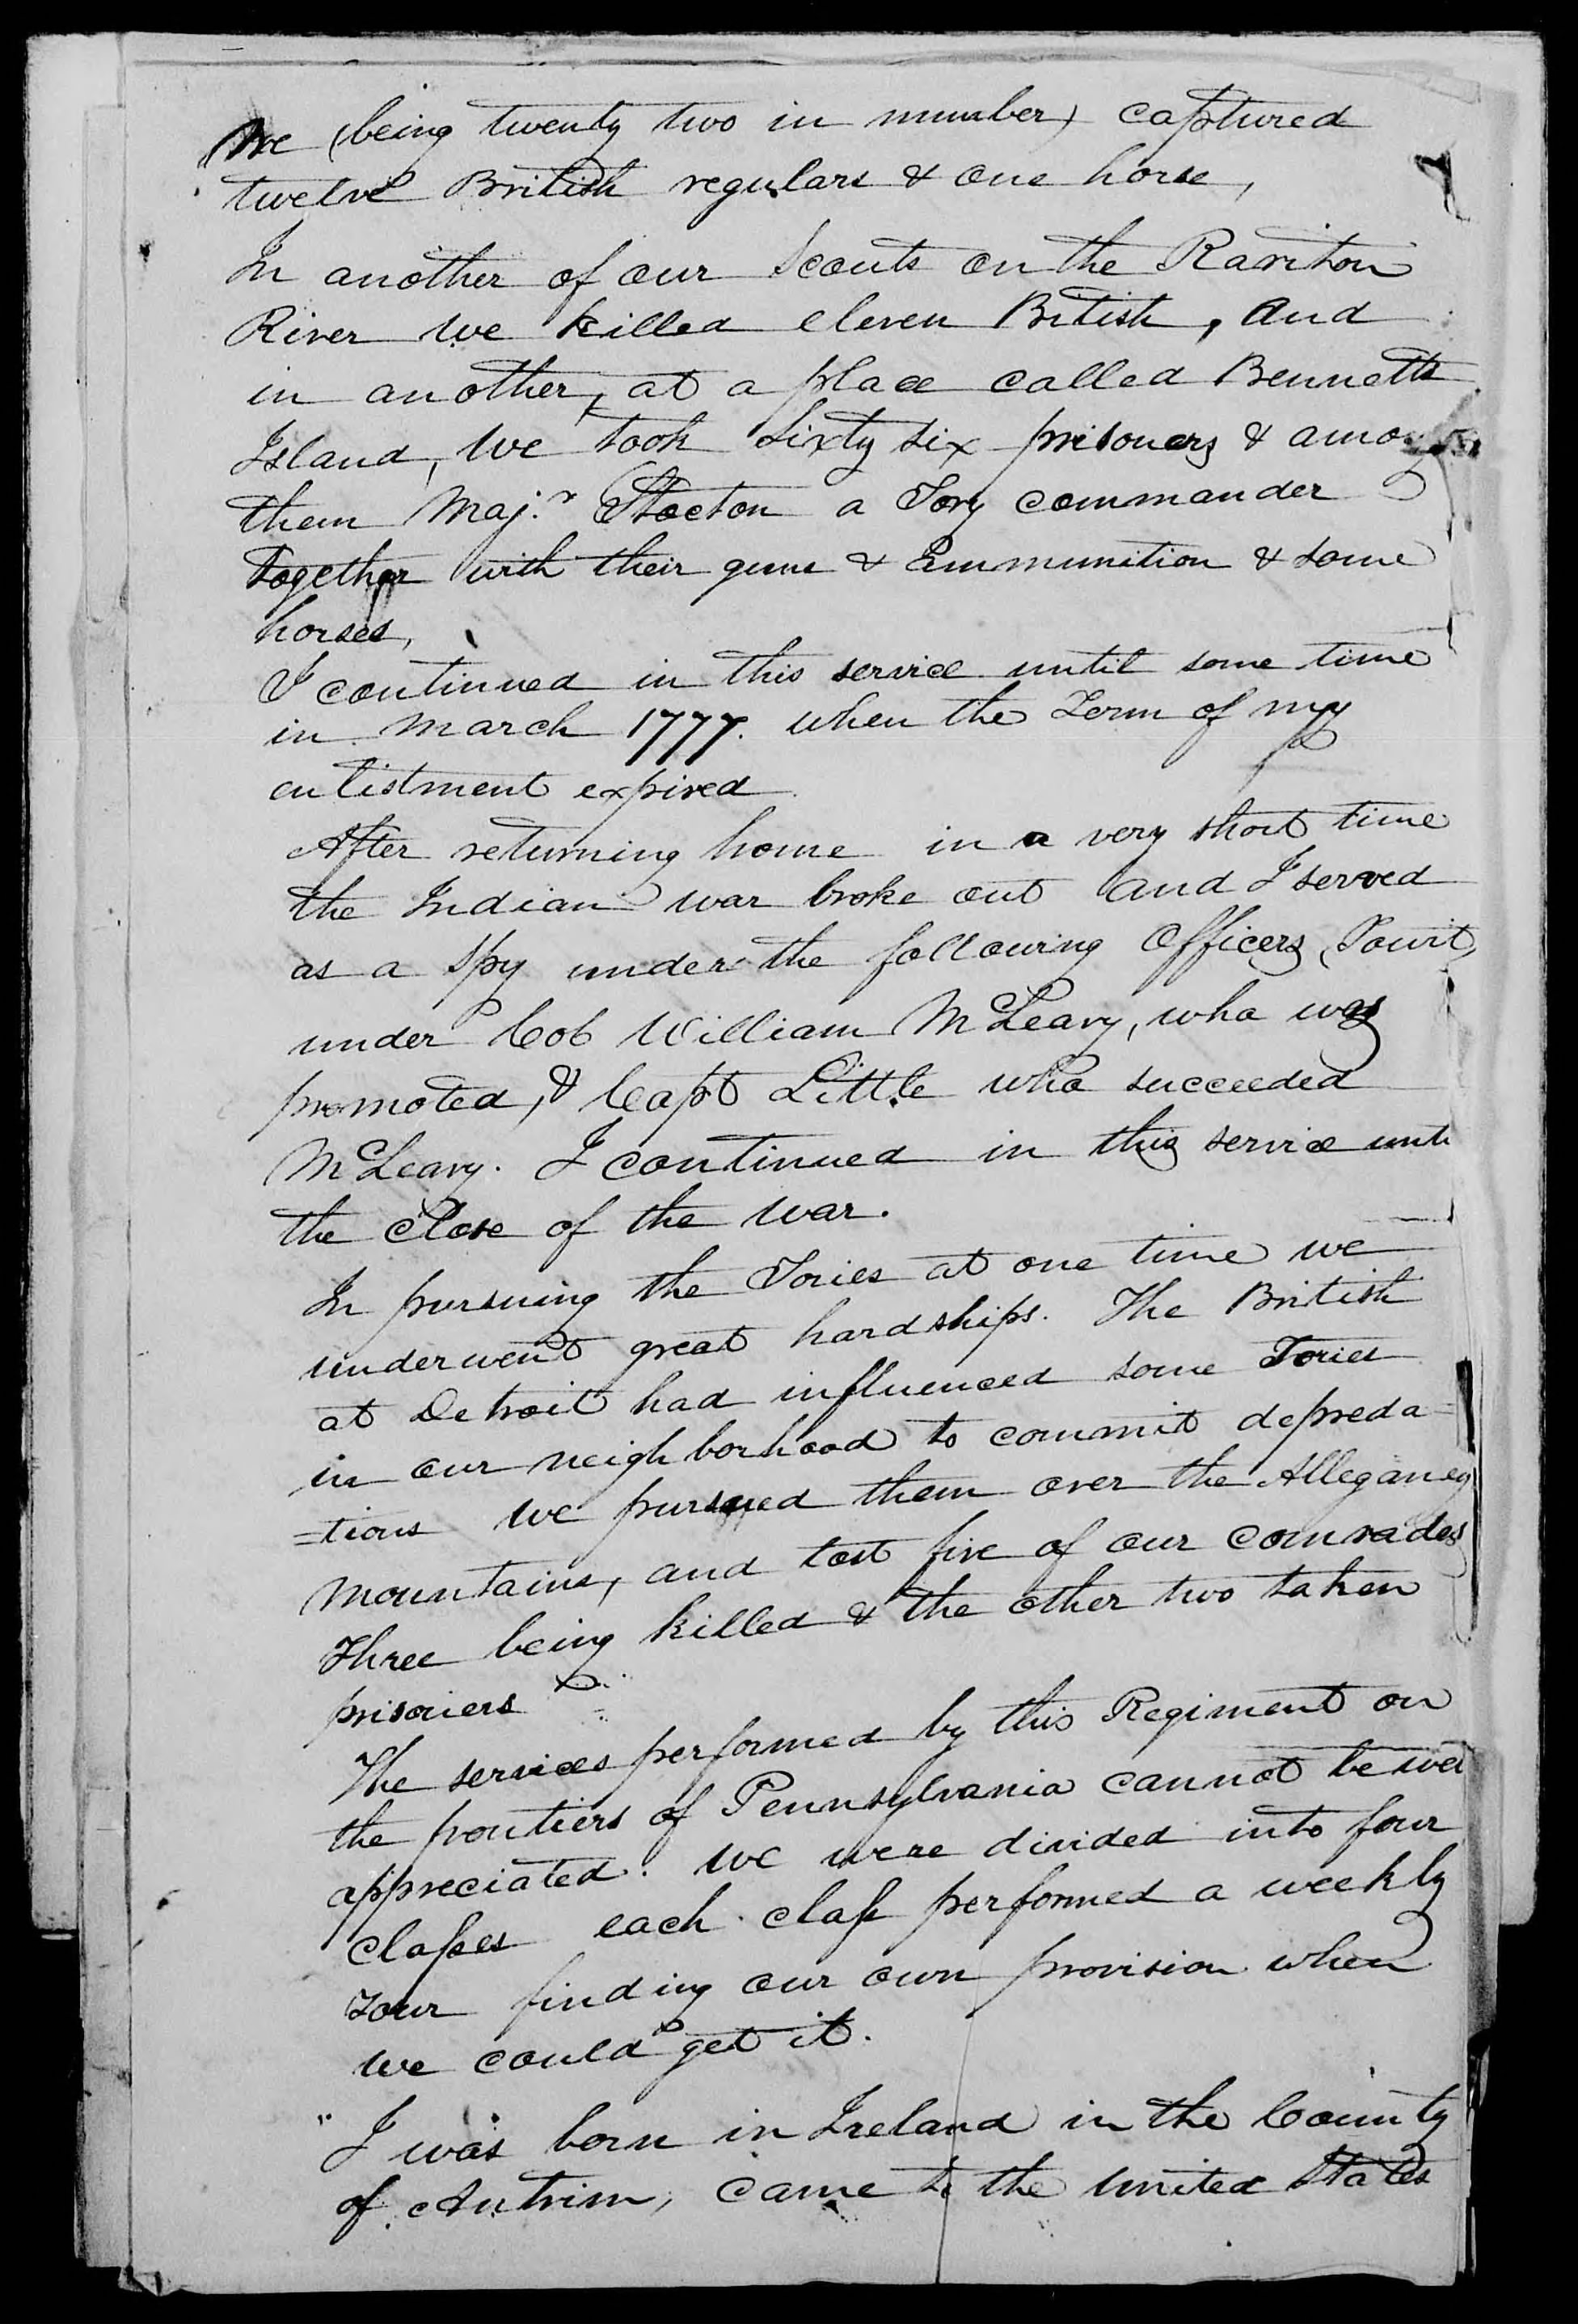 We (being twenty two in number) captured
twelve British regulars & one horse,
In another of our Scouts on the Rariton
River we killed eleven British, and
in another, at a place called Bennetts
Island, we took sixty six prisoners & among
them Maj.r Stocton a Tory commander
together with their guns & ammunition & some
horses,
I continued in this service until some time
in March 1777. when the Term of my
enlistment expired
After returning home in a very short time
the Indian war broke out and I served
as a spy under the following Officers, Towit,
under Col William McLeavy, who was
promoted, & Capt Little who succeeded
McLeavy. I continued in this service unti
the close of the war.
In pursuing the Tories at one time we
underwent great hardships. The British
at Detroit had influenced some Tories
in our neighborhood to commit depreda=
=tions we pursued them over the Alleganey
Mountains, and lost five of our comrades
Three being killed & the other two taken
prisoners
The services performed by this Regiment on
the frontiers of Pennsylvania cannot be well
appreciated. We were divided into four
classes each class performed a weekly
Tour finding our own provision when
we could get it.
" I was born in Ireland in the County
of Antrim, came to the United States